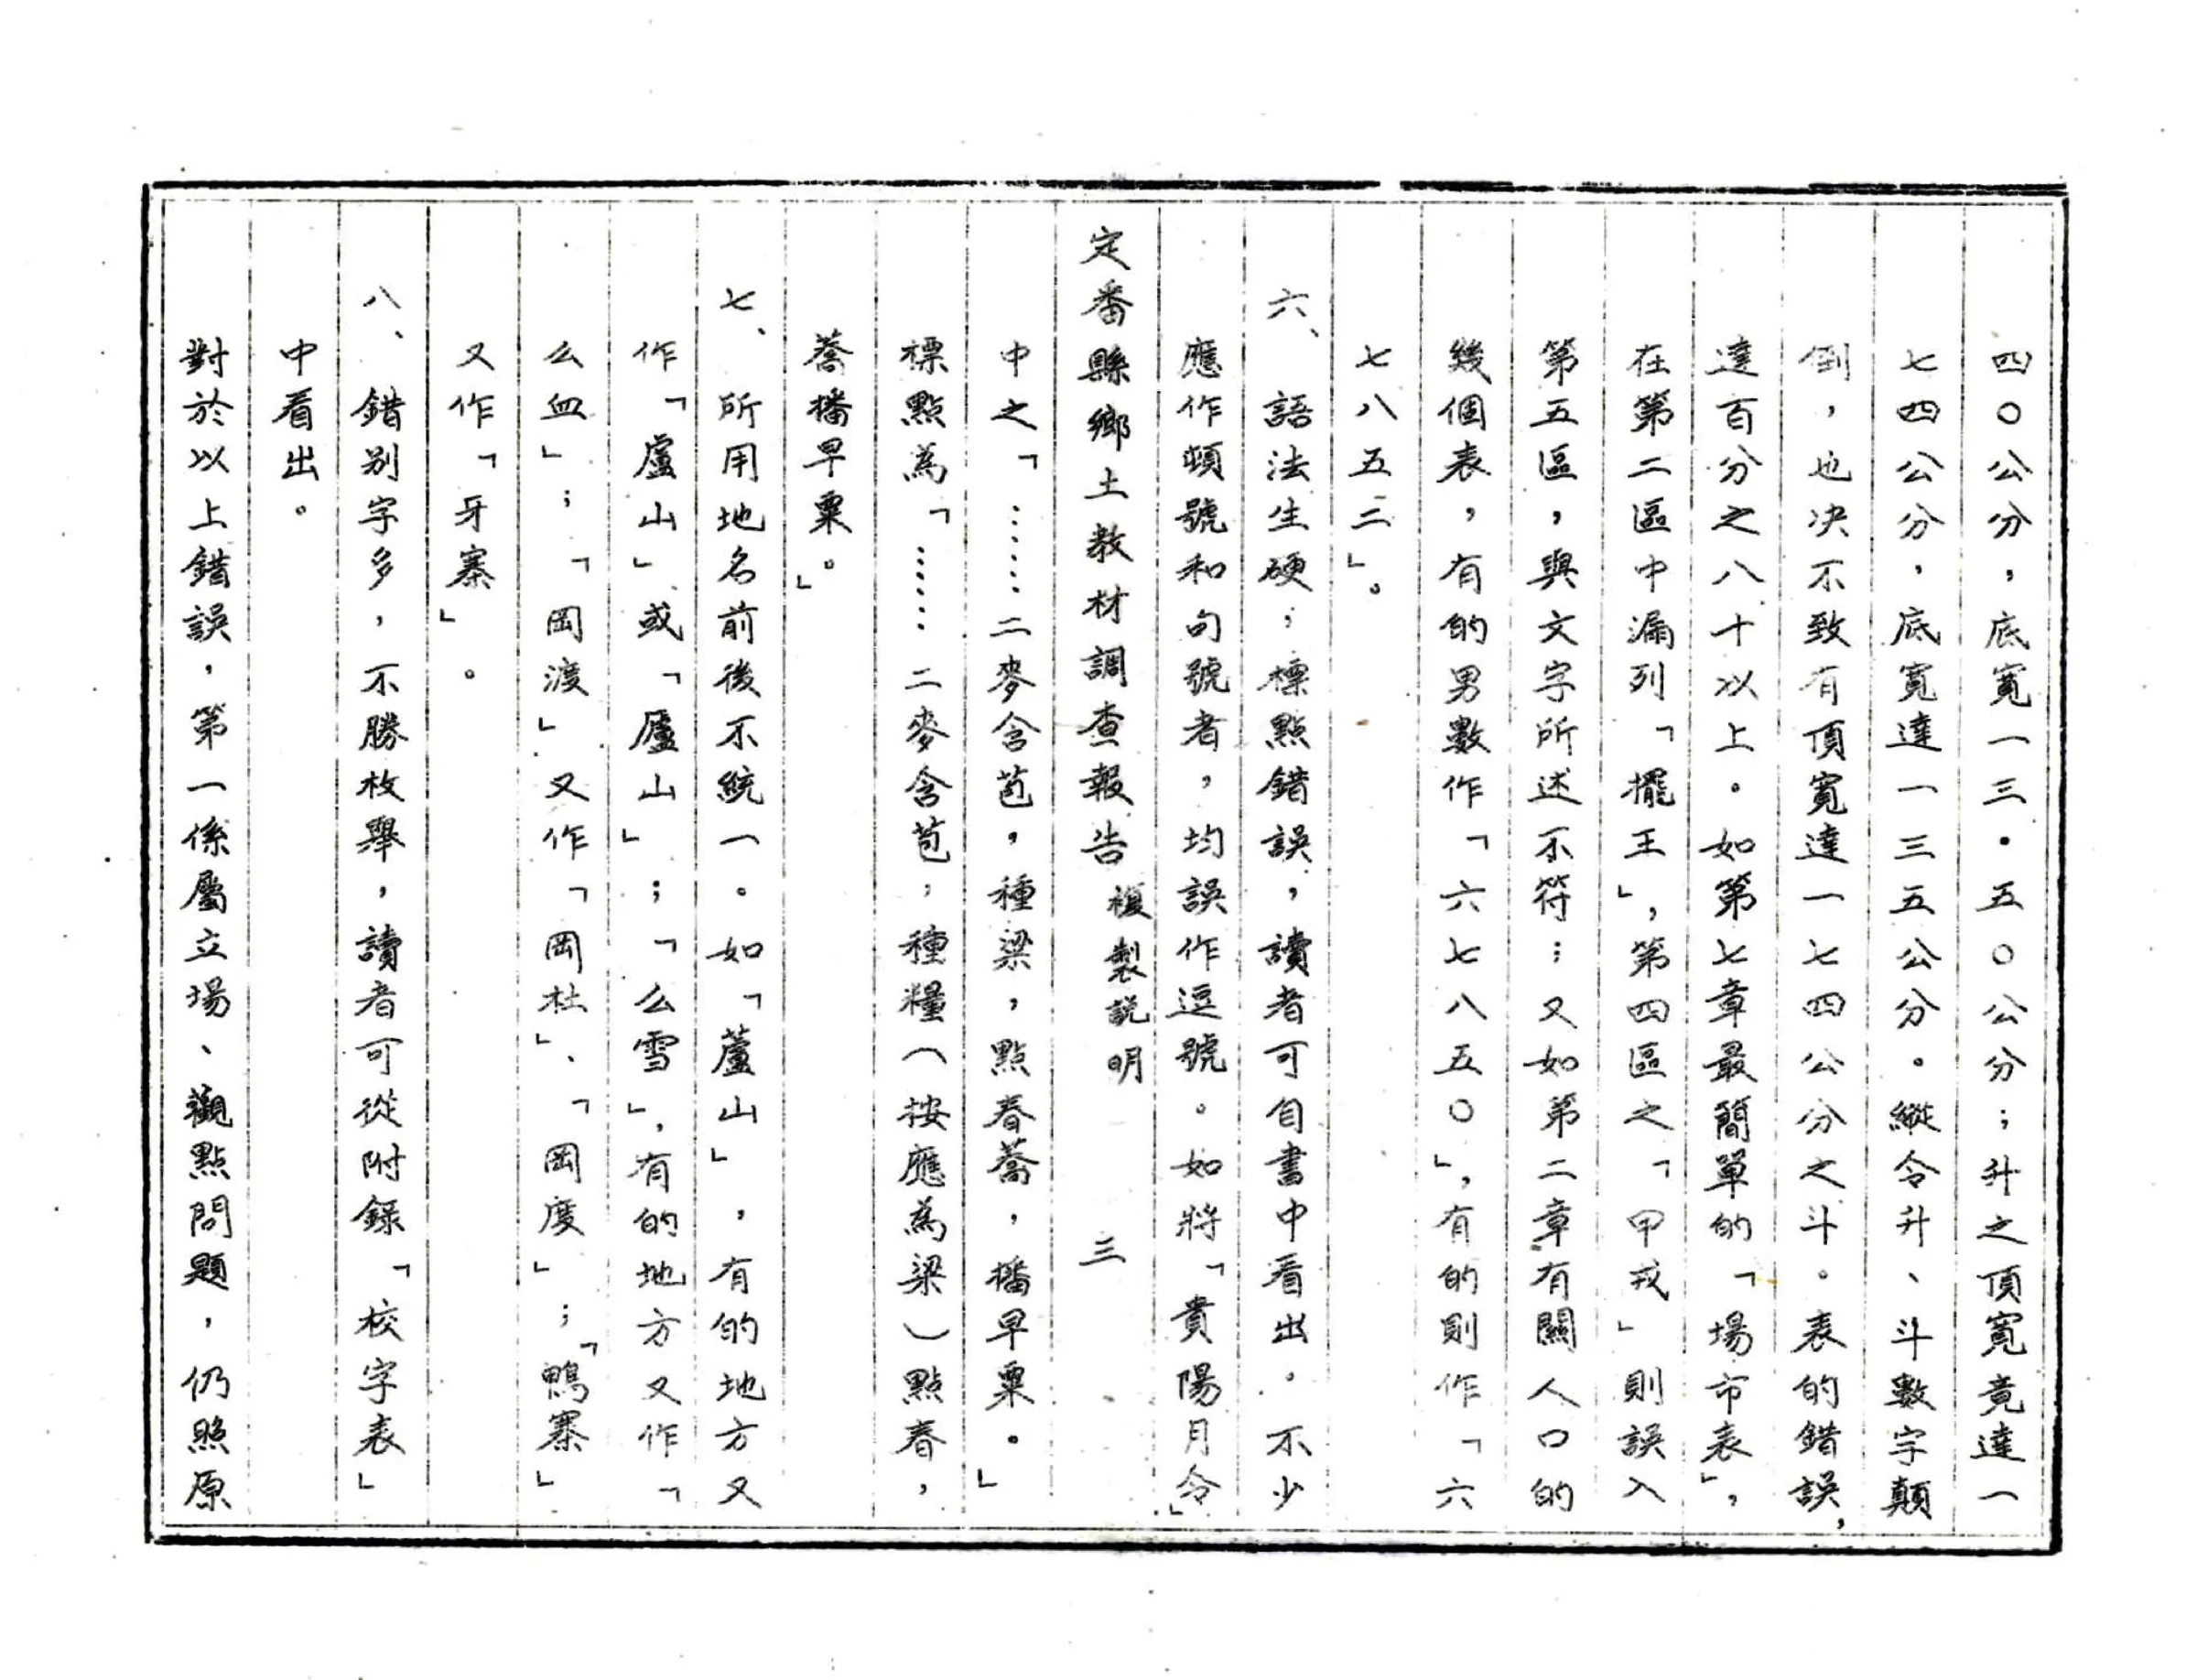 四〇公分，底寬一三．五〇公分；升之頂寬竟達一
七四公分，底寬達一三五公分。縱令升、斗數字顛
倒，也決不致有頂寬達一七四公分之斗。表的錯誤，
達百分之八十以上。如第七章最簡單的「場市表」，
在第二區中漏列「擺王」，第四區之「甲戎」則誤入
第五區，與文字所述不符；又如第二章有關人口的
幾個表，有的男數作「六七八五〇」，有的則作「六
七八五二」。
六、語法生硬；標點錯誤，讀者可自書中看出。不少
應作頓號和句號者，均誤作逗號。如將「貴陽月令」
定番縣鄉土教材調查報告 複製説明 三
中之「……二麥含苞，種梁，點春蕎，播早粟。」
標點為「……二麥含苞；種糧（按應為梁）點春，
蕎播早粟。」
七、所用地名前後不統一。如「蘆山」，有的地方又
作「盧山」或「廬山」；「么雪」，有的地方又作「
么血」；「岡渡」又作「岡杜」、「岡度」；「鴨寨」
又作「牙寨」。
八、錯別字多，不勝枚舉，讀者可從附錄「校字表」
中看出。
對於以上錯誤，第一係屬立場、觀點問題，仍照原